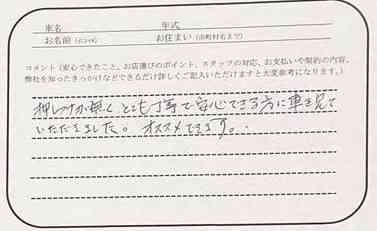 車名 年式
お名前（イニシャル） お住まい（市町村名まで）
コメント（安心できたこと、お店選びのポイント、スタッフの対応、お支払いや契約の内容、
弊社を知ったきっかけなどできるだけ詳しくご記入いただけますと大変参考になります。）
押しつけが無く とても丁寧で安心できる方に車を見て
いただきました。オススメできます。